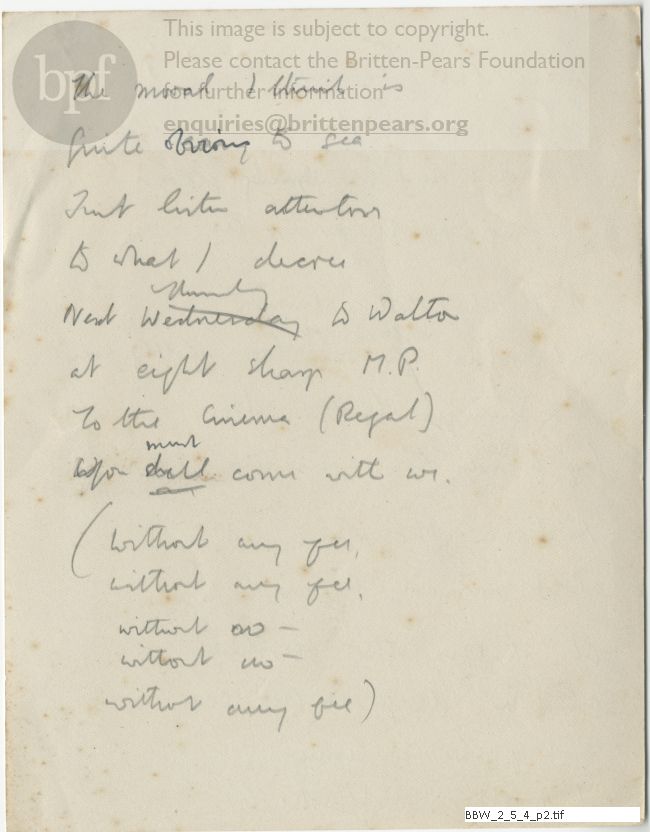 bpf
This image is subject to copyright.
Please contact the Britten-Pears Foundation
for further information
enquiries@brittenpears.org
The moral I think is
Quite obvious to see
Just listen attentive
to what I decree
Thursday
Next Wednesday to Walton
at eight sharp M.P.
To the Cinema (Regal)
must
you shall come with me.
(without any fee,
without any fee,
without no —
without no —
without any fee)
BBW_2_5_4_p2.tif